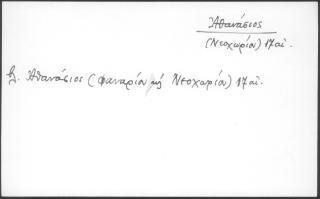 Ἀθανάσιος
(Νεοχωρίου) 17 αἰ.
Ἀθανάσιος (Φαναρίου καὶ Νεοχωρίου) 17 αἰ.